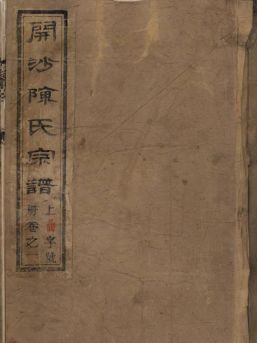 開沙陳氏宗譜
上 字號
卷之一